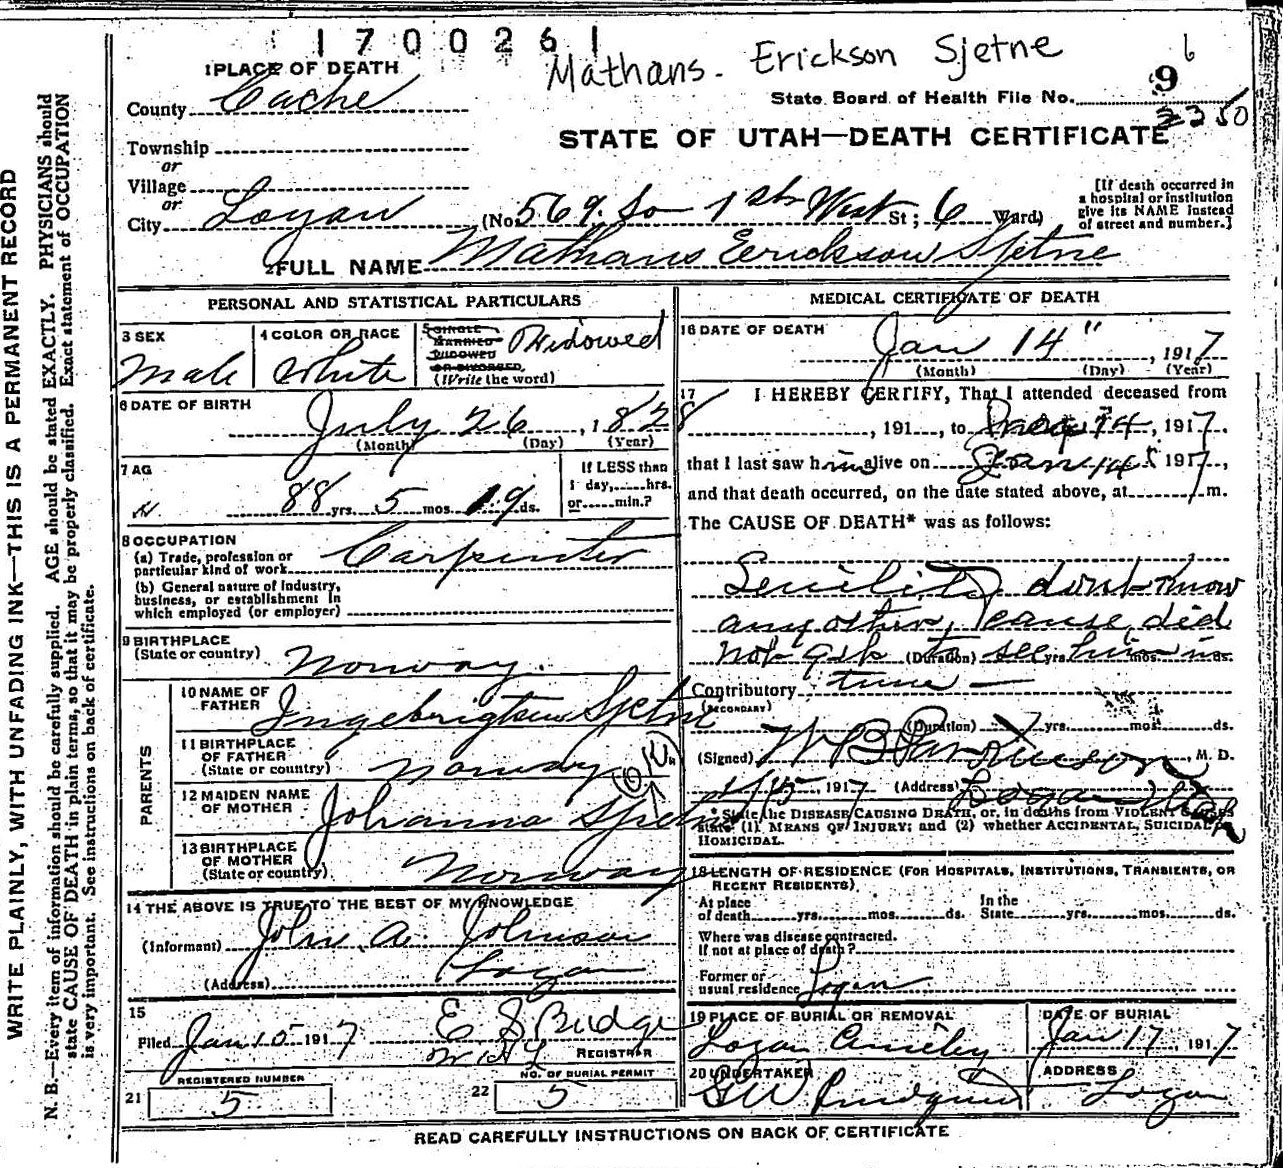 1700261
Mathans. Erickson Sjetne
1 PLACE OF DEATH
County Cache
State Board of Health File No. 9 6
2350
STATE OF UTAH—DEATH CERTIFICATE
Township
or
Village
or
City Logan (No. 569. So 1st West St; 6 Ward)
[If death occurred in a hospital or institution give its NAME instead of street and number.]
2 FULL NAME Mathans Eerickson Sjetne
PERSONAL AND STATISTICAL PARTICULARS
3 SEX
Male
4 COLOR OR RACE
White
5 SINGLE MARRIED WIDOWED OR DIVORCED, (Write the word)
Widowed
6 DATE OF BIRTH
July 26, 1828
(Month) (Day) (Year)
7 AG
88 yrs. 5 mos. 19 ds.
If LESS than
1 day,......hrs.
or......min.?
8 OCCUPATION
(a) Trade, profession or particular kind of work Carpenter
(b) General nature of industry, business, or establishment in which employed (or employer)
9 BIRTHPLACE
(State or country) Norway.
PARENTS
10 NAME OF FATHER Ingebrigtsen Sjetne
11 BIRTHPLACE OF FATHER (State or country) Norway
12 MAIDEN NAME OF MOTHER Johanna Sjetne
13 BIRTHPLACE OF MOTHER (State or country) Norway
14 THE ABOVE IS TRUE TO THE BEST OF MY KNOWLEDGE
(Informant) John A. Johnson
(Address) Logan
15
Filed Jan 15 1917 E S Budge
REGISTRAR
REGISTERED NUMBER
21 5
NO. OF BURIAL PERMIT
22 5
MEDICAL CERTIFICATE OF DEATH
16 DATE OF DEATH
Jan 14", 1917
(Month) (Day) (Year)
17 I HEREBY CERTIFY, That I attended deceased from
, 191..., to 14, 1917.
that I last saw him alive on Jan 14 1917,
and that death occurred, on the date stated above, at m.
The CAUSE OF DEATH* was as follows:
Senility dont know
any other cause, did
not get (Duration) to see yrs. him mos. in ds.
Contributory time —
(SECONDARY)
(Duration) yrs. mos. ds.
(Signed) W B Parkinson, M. D.
1/15, 1917 (Address) Logan Utah
*State the DISEASE CAUSING DEATH, or, in deaths from VIOLENT CAUSES
state (1) MEANS OF INJURY; and (2) whether ACCIDENTAL, SUICIDAL, or
HOMICIDAL.
18 LENGTH OF RESIDENCE (FOR HOSPITALS, INSTITUTIONS, TRANSIENTS, OR
RECENT RESIDENTS)
At place of death yrs. mos. ds. In the State yrs. mos. ds.
Where was disease contracted.
If not at place of death?
Former or usual residence Logan
19 PLACE OF BURIAL OR REMOVAL
Logan
DATE OF BURIAL
Jan 17, 1917
20 UNDERTAKER
ADDRESS
Logan
READ CAREFULLY INSTRUCTIONS ON BACK OF CERTIFICATE
WRITE PLAINLY, WITH UNFADING INK—THIS IS A PERMANENT RECORD
N. B.—Every item of information should be carefully supplied. AGE should be stated EXACTLY. PHYSICIANS should
state CAUSE OF DEATH in plain terms, so that it may be properly classified. Exact statement of OCCUPATION
is very important. See instructions on back of certificate.